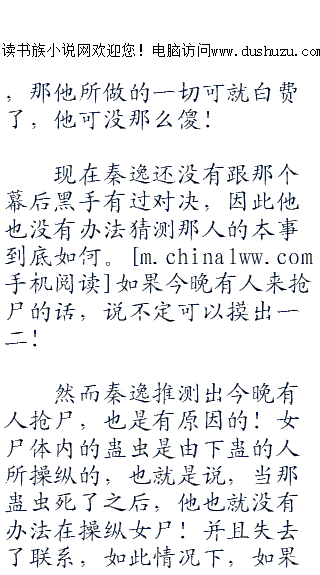 读书族小说网欢迎您！电脑访问www.dushuzu.com
，那他所做的一切可就白费
了，他可没那么傻！
现在秦逸还没有跟那个
幕后黑手有过对决，因此他
也没有办法猜测那人的本事
到底如何。[m.chinalww.com
手机阅读]如果今晚有人来抢
尸的话，说不定可以摸出一
二！
然而秦逸推测出今晚有
人抢尸，也是有原因的！女
尸体内的蛊虫是由下蛊的人
所操纵的，也就是说，当那
蛊虫死了之后，他也就没有
办法在操纵女尸！并且失去
了联系，如此情况下，如果